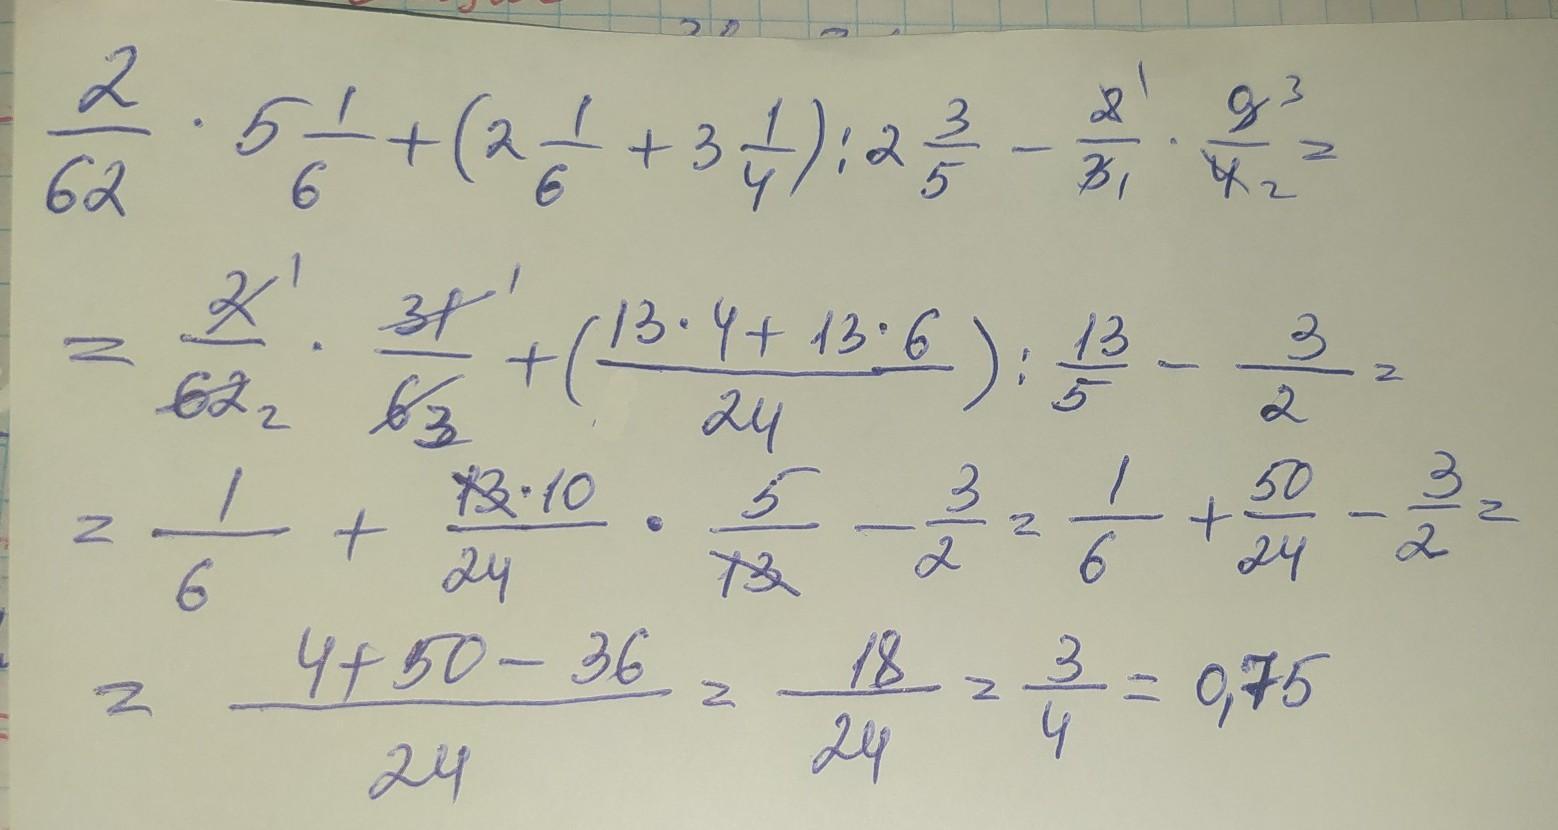 2/62 · 5 1/6 + (2 1/6 + 3 1/4) : 2 3/5 − 2¹/3₁ · 9³/4₂ =
= 2¹/62₂ · 31¹/6₃ + (13·4 + 13·6/24) : 13/5 − 3/2 =
= 1/6 + 13·10/24 · 5/13 − 3/2 = 1/6 + 50/24 − 3/2 =
= 4+50−36/24 = 18/24 = 3/4 = 0,75